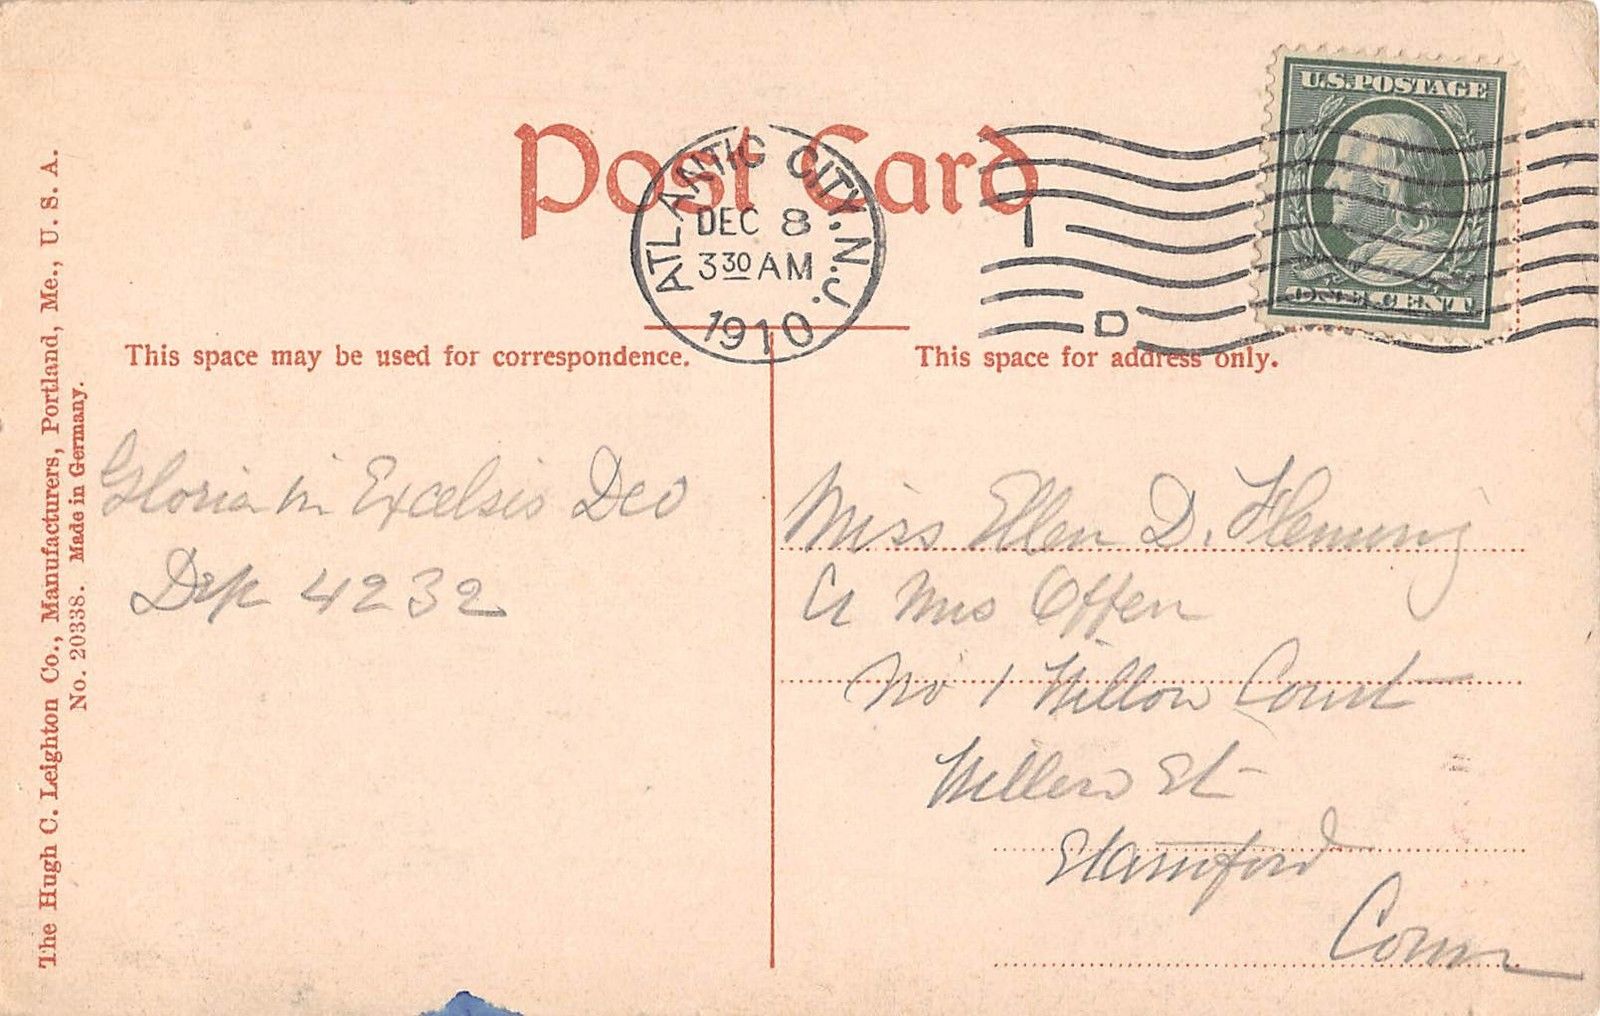 Post Card
ATLANTIC CITY, N.J.
DEC 8
3 30 AM
1910
1
D
U.S.POSTAGE
ONE CENT
This space may be used for correspondence.
This space for address only.
Gloria in Excelsis Deo
4232
Miss Ellen D. Fleming
Mrs Offen
No 1 Willow Court
Willow St
Stamford
Conn
The Hugh C. Leighton Co., Manufacturers, Portland, Me., U. S. A.
No. 20338. Made in Germany.